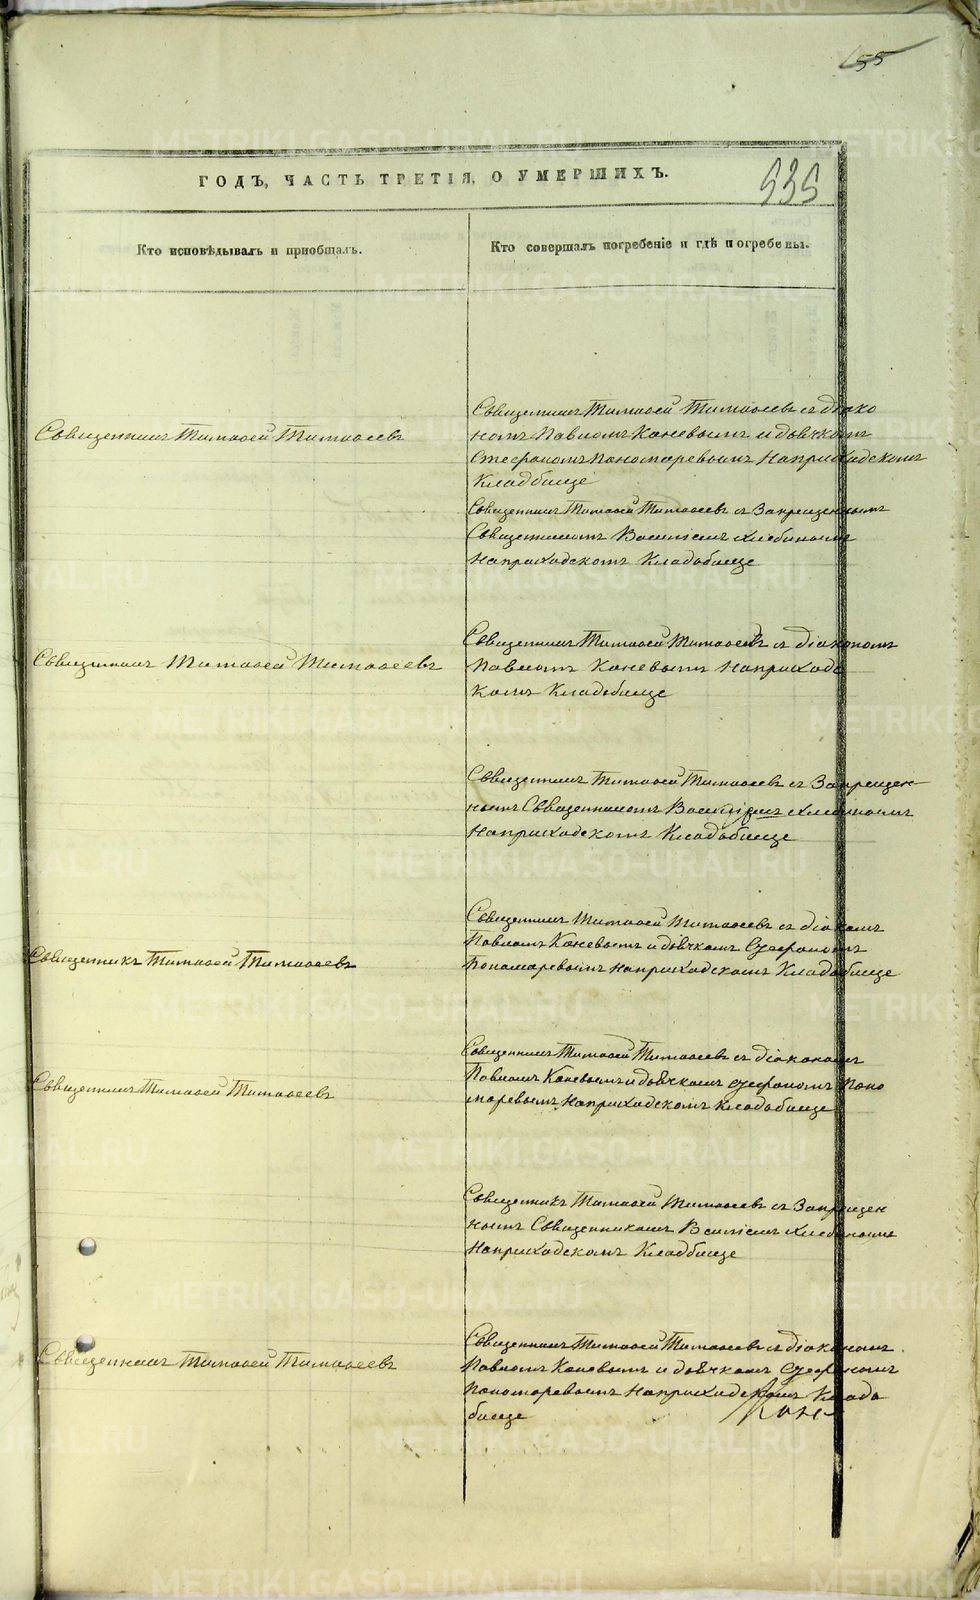 155
ГОДЪ, ЧАСТЬ ТРЕТІЯ, О УМЕРШИХЪ.
535
Кто исповѣдывалъ и пріобщалъ.
Кто совершалъ погребеніе и гдѣ погребены.
Священникъ Тимоѳей Тимоѳеевъ
Священникъ Тимоѳей Тимоѳеевъ съ діако
номъ Павломъ Каневымъ и дьячкомъ
Стефаномъ Пономаревымъ На приходскомъ
Кладбище
Священникъ Тимоѳей Тимоѳеевъ съ Запрещеннымъ
Священникомъ Василіемъ Хлебинымъ
На приходскомъ Кладобище
Священникъ Тимоѳей Тимоѳеевъ
Священникъ Тимоѳей Тимоѳеевъ съ діакономъ
Павломъ Каневымъ На приходс
комъ Кладобище
Священникъ Тимоѳей Тимоѳеевъ съ Запрещен
нымъ Священникомъ Василіемъ Хлебинымъ
На приходскомъ Кладобище
Священникъ Тимоѳей Тимоѳеевъ
Священникъ Тимоѳей Тимоѳеевъ съ діакомъ
Павломъ Каневымъ и дьячкомъ Стефаномъ
Понамаревымъ На приходскомъ Кладобище
Священникъ Тимоѳей Тимоѳеевъ
Священникъ Тимоѳей Тимоѳеевъ съ діакономъ
Павломъ Каневымъ и дьячкомъ Стефаномъ Поно
маревымъ На приходскомъ Кладобище
Священникъ Тимоѳей Тимоѳеевъ съ Запрещен
нымъ Священникомъ Василіемъ Хлебинымъ
На приходскомъ Кладбище
Священникъ Тимоѳей Тимоѳеевъ
Священникъ Тимоѳей Тимоѳеевъ съ діакономъ
Павломъ Каневымъ и дьячкомъ Стефаномъ
Пономаревымъ На приходскомъ Кладо
бище
METRIKI.GASO-URAL.RU